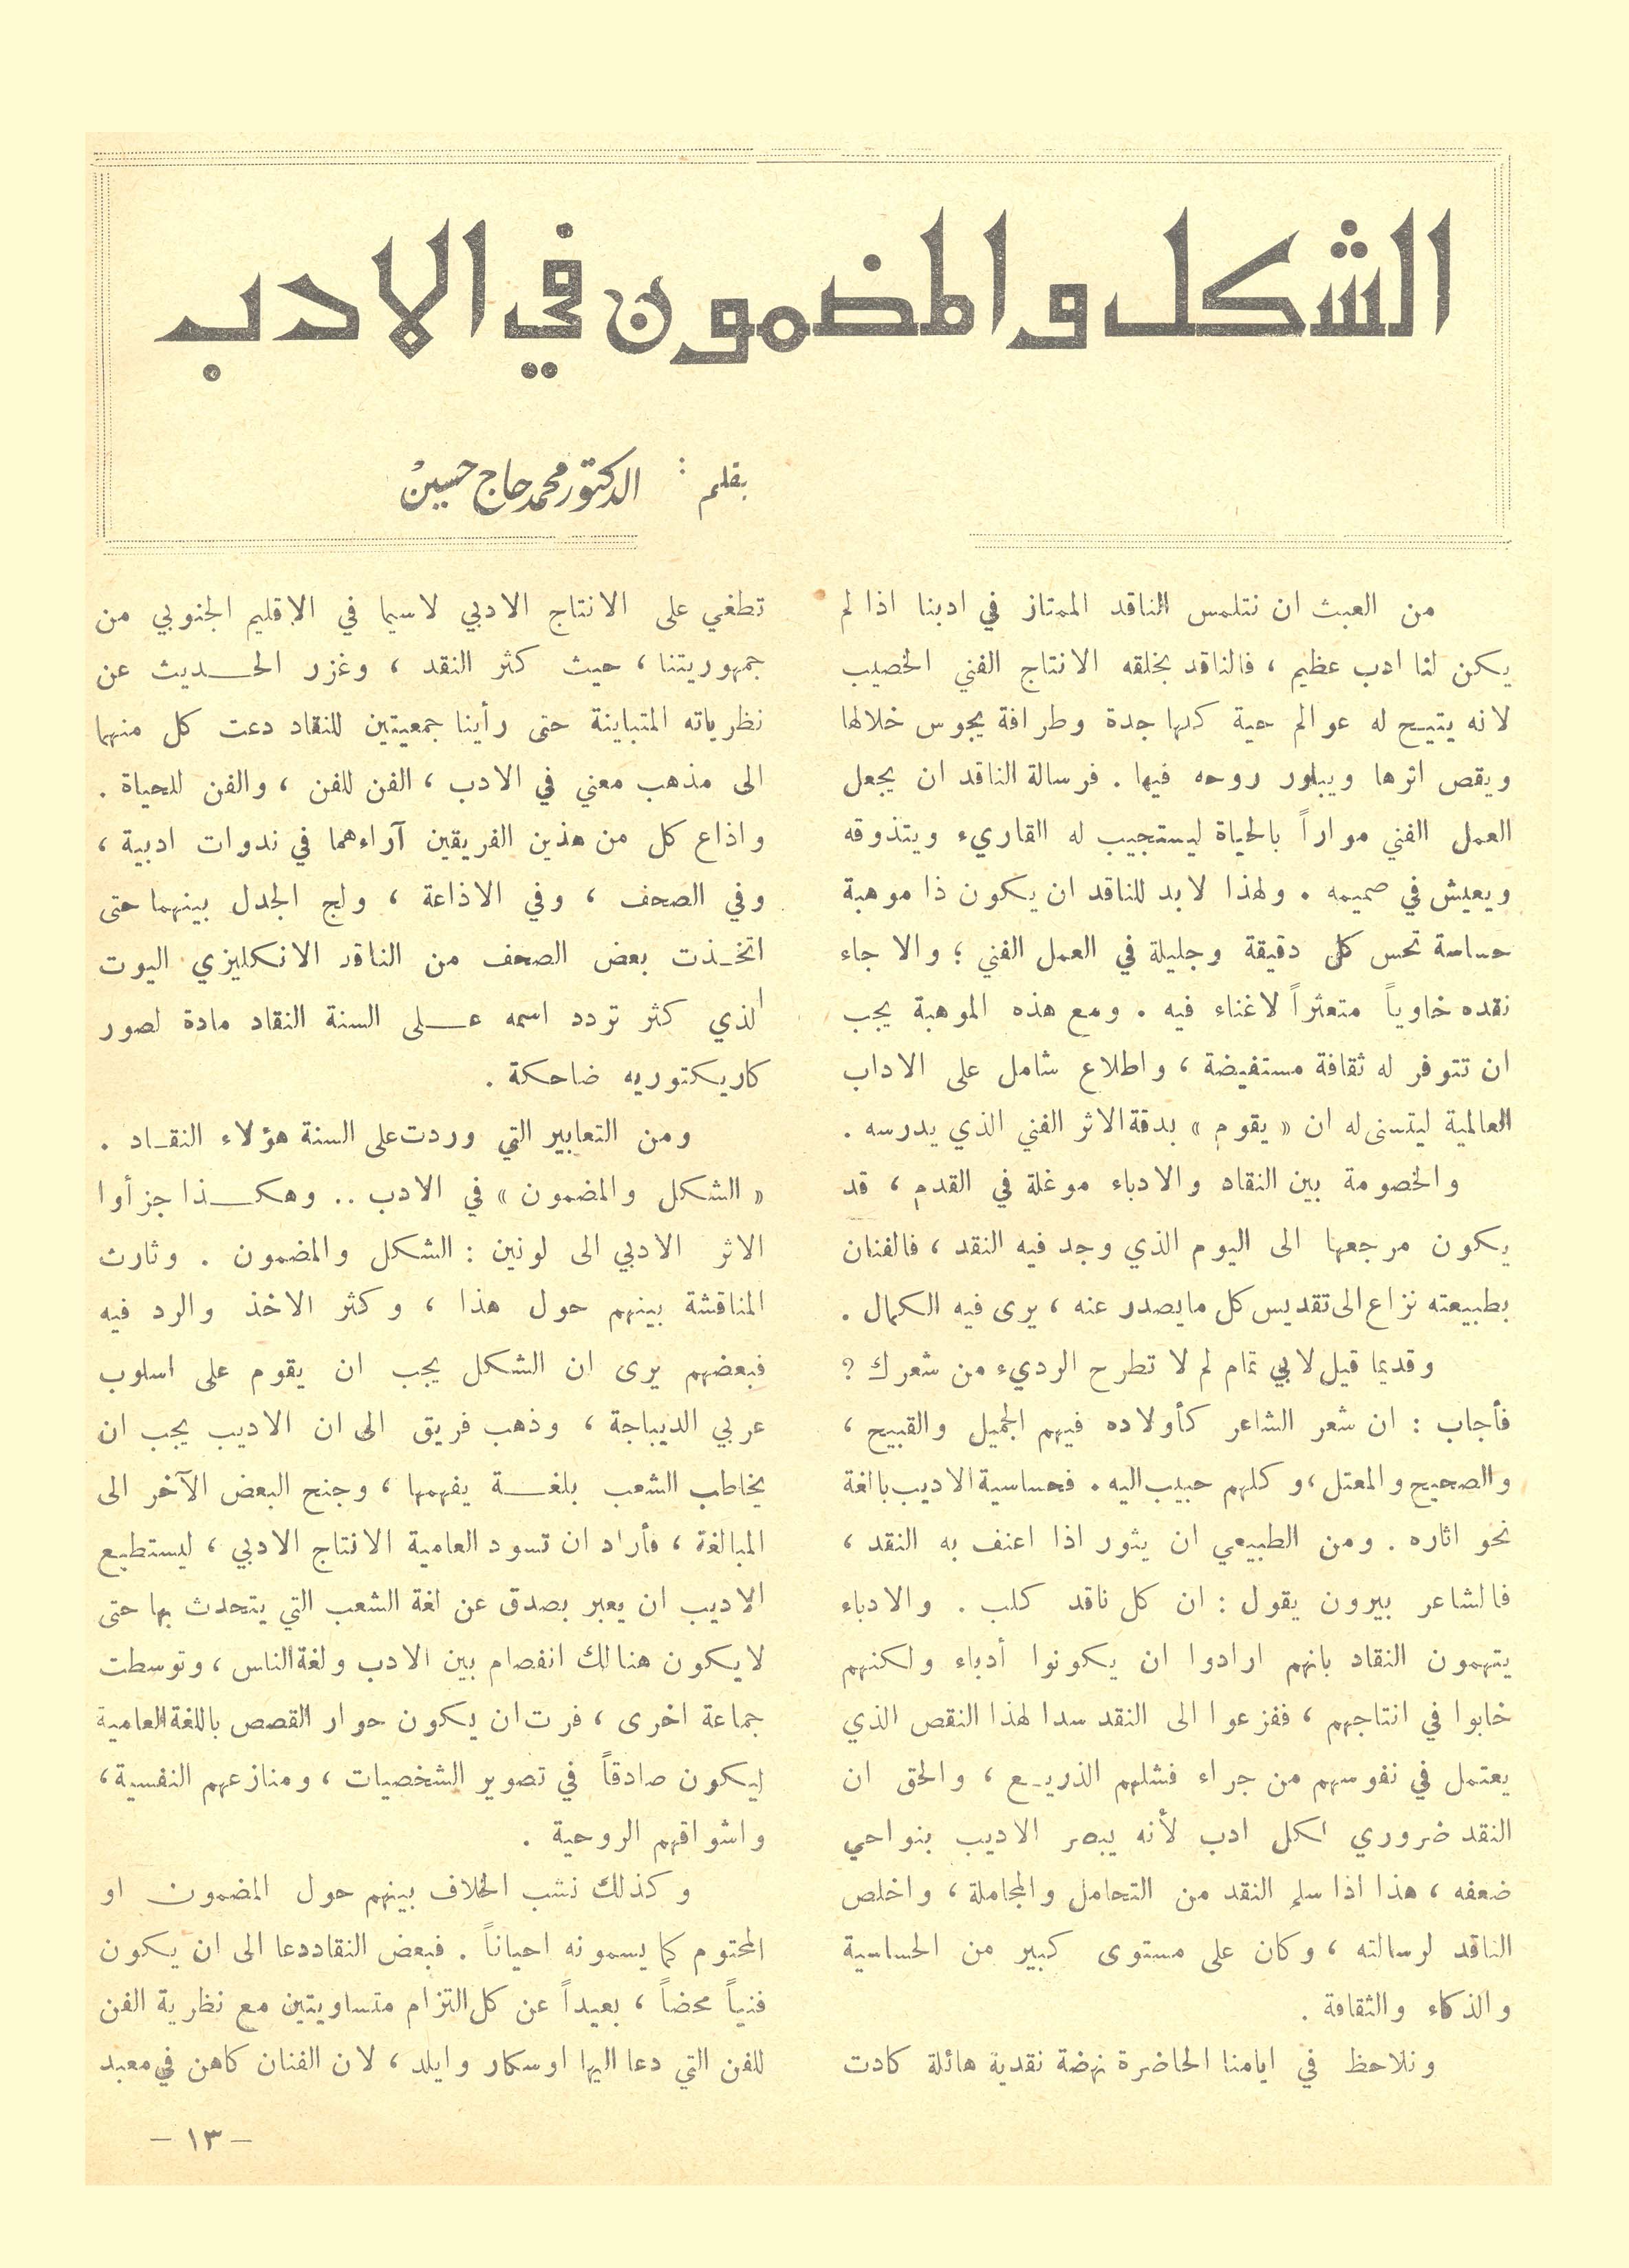 الشكل والمضمون في الادب
بقلم : الدكتور محمد حاج حسين
من العبث ان نتلمس الناقد الممتاز في ادبنا اذا لم
يكن لنا ادب عظيم ، فالناقد يخلقه الانتاج الفني الخصيب
لانه يتيح له عوالم حية كلها جدة وطرافة يجوس خلالها
ويقص اثرها ويبلور روحه فيها . فرسالة الناقد ان يجعل
العمل الفني مواراً بالحياة ليستجيب له القاريء ويتذوقه
ويعيش في صميمه . ولهذا لابد للناقد ان يكون ذا موهبة
حساسة تحس كل دقيقة وجليلة في العمل الفني ؛ والا جاء
نقده خاوياً متعثراً لاغناء فيه . ومع هذه الموهبة يجب
ان تتوفر له ثقافة مستفيضة ، واطلاع شامل على الاداب
العالمية ليتسنى له ان « يقوم » بدقة الاثر الفني الذي يدرسه .
والخصومة بين النقاد والادباء موغلة في القدم ، قد
يكون مرجعها الى اليوم الذي وجد فيه النقد ، فالفنان
بطبيعته نزاع الى تقديس كل مايصدر عنه ، يرى فيه الكمال .
وقديما قيل لابي تمام لم لا تطرح الرديء من شعرك ؟
فأجاب : ان شعر الشاعر كأولاده فيهم الجميل والقبيح ،
والصحيح والمعتل ، وكلهم حبيب اليه . فحساسية الاديب بالغة
نحو اثاره . ومن الطبيعي ان يثور اذا اعنف به النقد ،
فالشاعر بيرون يقول : ان كل ناقد كلب . والادباء
يتهمون النقاد بانهم ارادوا ان يكونوا أدباء ولكنهم
خابوا في انتاجهم ، ففزعوا الى النقد سدا لهذا النقص الذي
يعتمل في نفوسهم من جراء فشلهم الذريع ، والحق ان
النقد ضروري لكل ادب لأنه يبصر الاديب بنواحي
ضعفه ، هذا اذا سلم النقد من التحامل والمجاملة ، واخلص
الناقد لرسالته ، وكان على مستوى كبير من الحساسية
والذكاء والثقافة .
ونلاحظ في ايامنا الحاضرة نهضة نقدية هائلة كادت
تطغي على الانتاج الادبي لاسيما في الاقليم الجنوبي من
جمهوريتنا ، حيث كثر النقد ، وغزر الحـديث عن
نظرياته المتباينة حتى رأينا جمعيتين للنقاد دعت كل منهما
الى مذهب معني في الادب ، الفن للفن ، والفن للحياة .
واذاع كل من هذين الفريقين آراءهما في ندوات ادبية ،
وفي الصحف ، وفي الاذاعة ، ولج الجدل بينهما حتى
اتخـذت بعض الصحف من الناقد الانكليزي اليوت
الذي كثر تردد اسمه عـلى السنة النقاد مادة لصور
كاريكتوريه ضاحكة .
ومن التعابير التي وردت على السنة هؤلاء النقـاد .
« الشكل والمضمون » في الادب .. وهكـذا جزأوا
الاثر الادبي الى لونين : الشكل والمضمون . وثارت
المناقشة بينهم حول هذا ، وكثر الاخذ والرد فيه
فبعضهم يرى ان الشكل يجب ان يقوم على اسلوب
عربي الديباجة ، وذهب فريق الى ان الاديب يجب ان
يخاطب الشعب بلغـة يفهمها ، وجنح البعض الآخر الى
المبالغة ، فأراد ان تسود العامية الانتاج الادبي ، ليستطيع
الاديب ان يعبر بصدق عن لغة الشعب التي يتحدث بها حتى
لايكون هنالك انفصام بين الادب ولغة الناس ، وتوسطت
جماعة اخرى ، فرت ان يكون حوار القصص باللغة العامية
ليكون صادقاً في تصوير الشخصيات ، ومنازعهم النفسية ،
واشواقهم الروحية .
وكذلك نشب الخلاف بينهم حول المضمون او
المحتوم كما يسمونه احياناً . فبعض النقاد دعا الى ان يكون
فنياً محضاً ، بعيداً عن كل التزام متساويتين مع نظرية الفن
للفن التي دعا اليها اوسكار وايلد ، لان الفنان كاهن في معبد
– ١٣ –